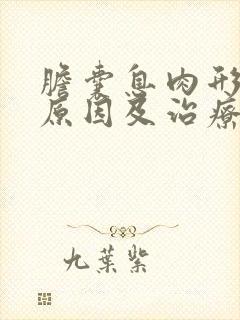 膽囊息肉形
原因及治療
九葉紫